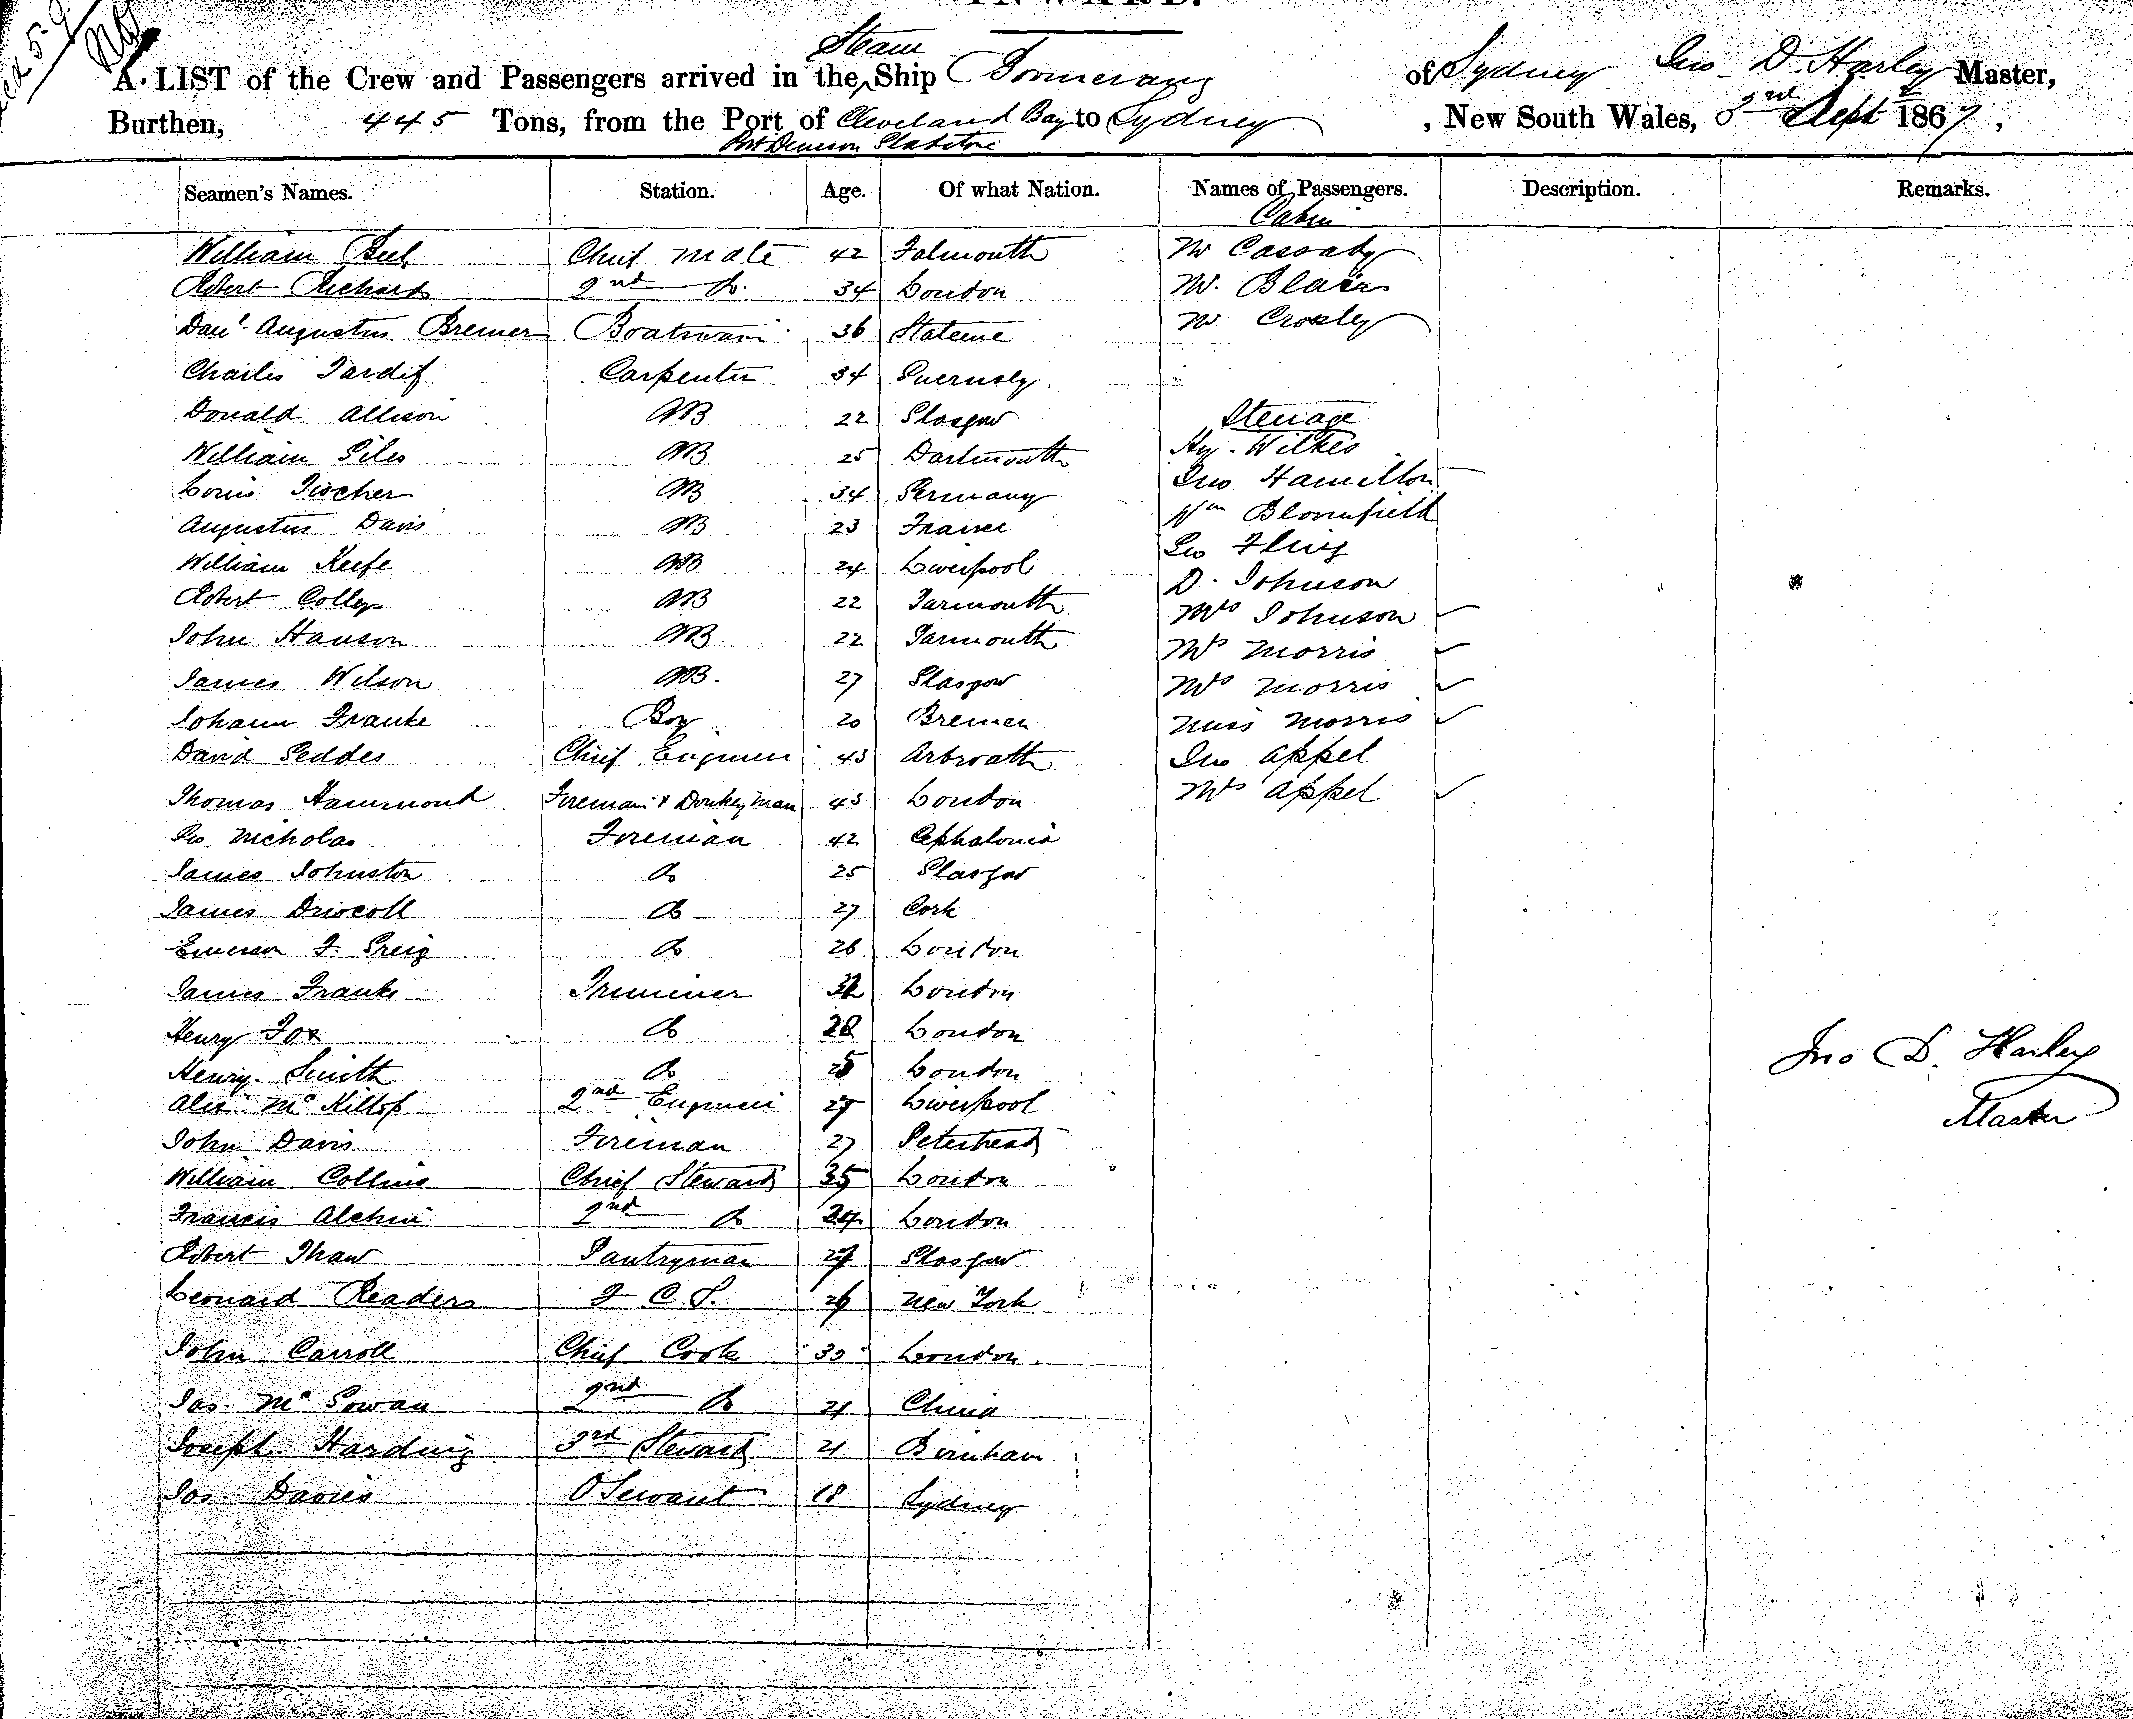 INWARD.
Steam
A LIST of the Crew and Passengers arrived in the Ship Boomerang of Sydney Jno D. Harley Master,
Burthen, 445 Tons, from the Port of Cleveland Bay to Sydney, New South Wales, 3rd Sept 1867,
Port Denison Gladstone
Seamen's Names. Station. Age. Of what Nation. Names of Passengers. Description. Remarks.
Cabin
William Chief Mate 42 Falmouth Mr Cassady
Robert Richards 2nd Do 34 London Mr. Blair
Danl Augustus Bremer Boatswain 36 Mr Crossley
Charles Tardif Carpenter 34 Guernsly
Donald Allison AB 22 Glasgow Steerage
William Giles AB 25 Dartmouth Hy. Wilkes
Louis Fischer AB 34 Germany Jno Hamilton
Augustus Davis AB 23 France Wm Bloomfield
William Keefe AB 24 Liverpool Geo
Robert Colley AB 22 Yarmouth D. Johnson
John Hanson AB 22 Yarmouth Mrs Johnson
James Wilson AB. 27 Glasgow Mr Morris
Johann Franke Boy 20 Bremen Mrs Morris
David Geddes Chief Engineer 43 Arbroath Miss Morris
Thomas Hammond Fireman & Donkeyman 43 London Jno Appel
Geo Nicholas Fireman 42 Cephalonia Mrs Appel
James Johnston Do 25 Glasgow
James Driscoll Do 27 Cork
Emerson F. Greig Do 26 London
James Franks Trimmer London
Henry Fox Do 28 London
Henry Smith Do 25 London
Alex Mc Killop 2nd Engineer 27 Liverpool
John Davis Fireman 27 Peterhead
William Collins Chief Steward 35 London
Francis Alchin 2nd Do 24 London
Robert Thaw Pantryman 27 Glasgow
Leonard Readers F. C. S. 26 New York
John Carroll Chief Cook 30 London
Jas Mc Gowan 2nd Do 21 China
Joseph Harding 3rd Steward 21
Jas Davies O Servant 18 Sydney
Jno D. Harley
Master